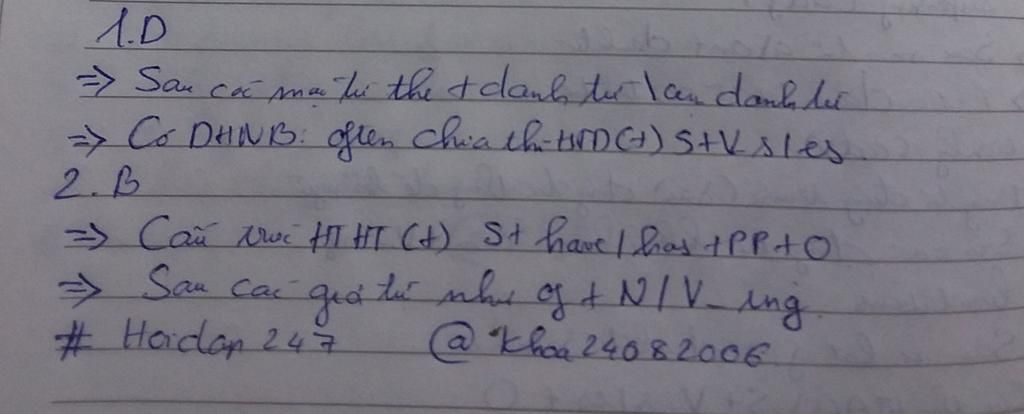 1.D
=> Sau các mạo từ the + danh từ / cụm danh từ
=> Có DHNB: often chia thì HTD (+) S+V s/es
2. B
=> Cấu trúc HTHT (+) S + have / has + PP + O
=> Sau các giới từ như of + N / V_ing
# Hoidap247 @khoa24082006